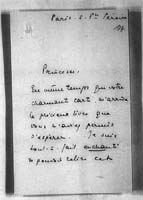 Paris. 5. Pce
Princesse,
En même temps que votre
charmante carte m'arrive
le précieux livre que
vous m'aviez permis
d'espérer. Je suis
tout-à-fait enchanté